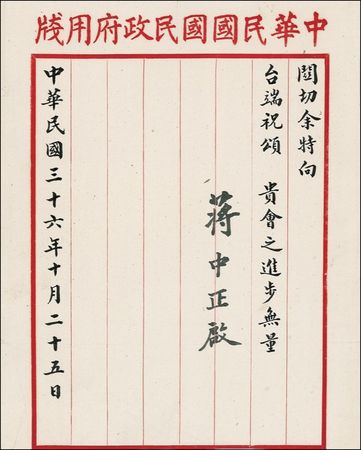 中華民國國民政府用牋
關切余特向
台端祝頌　貴會之進步無量
蔣中正啟
中華民國三十六年十月二十五日